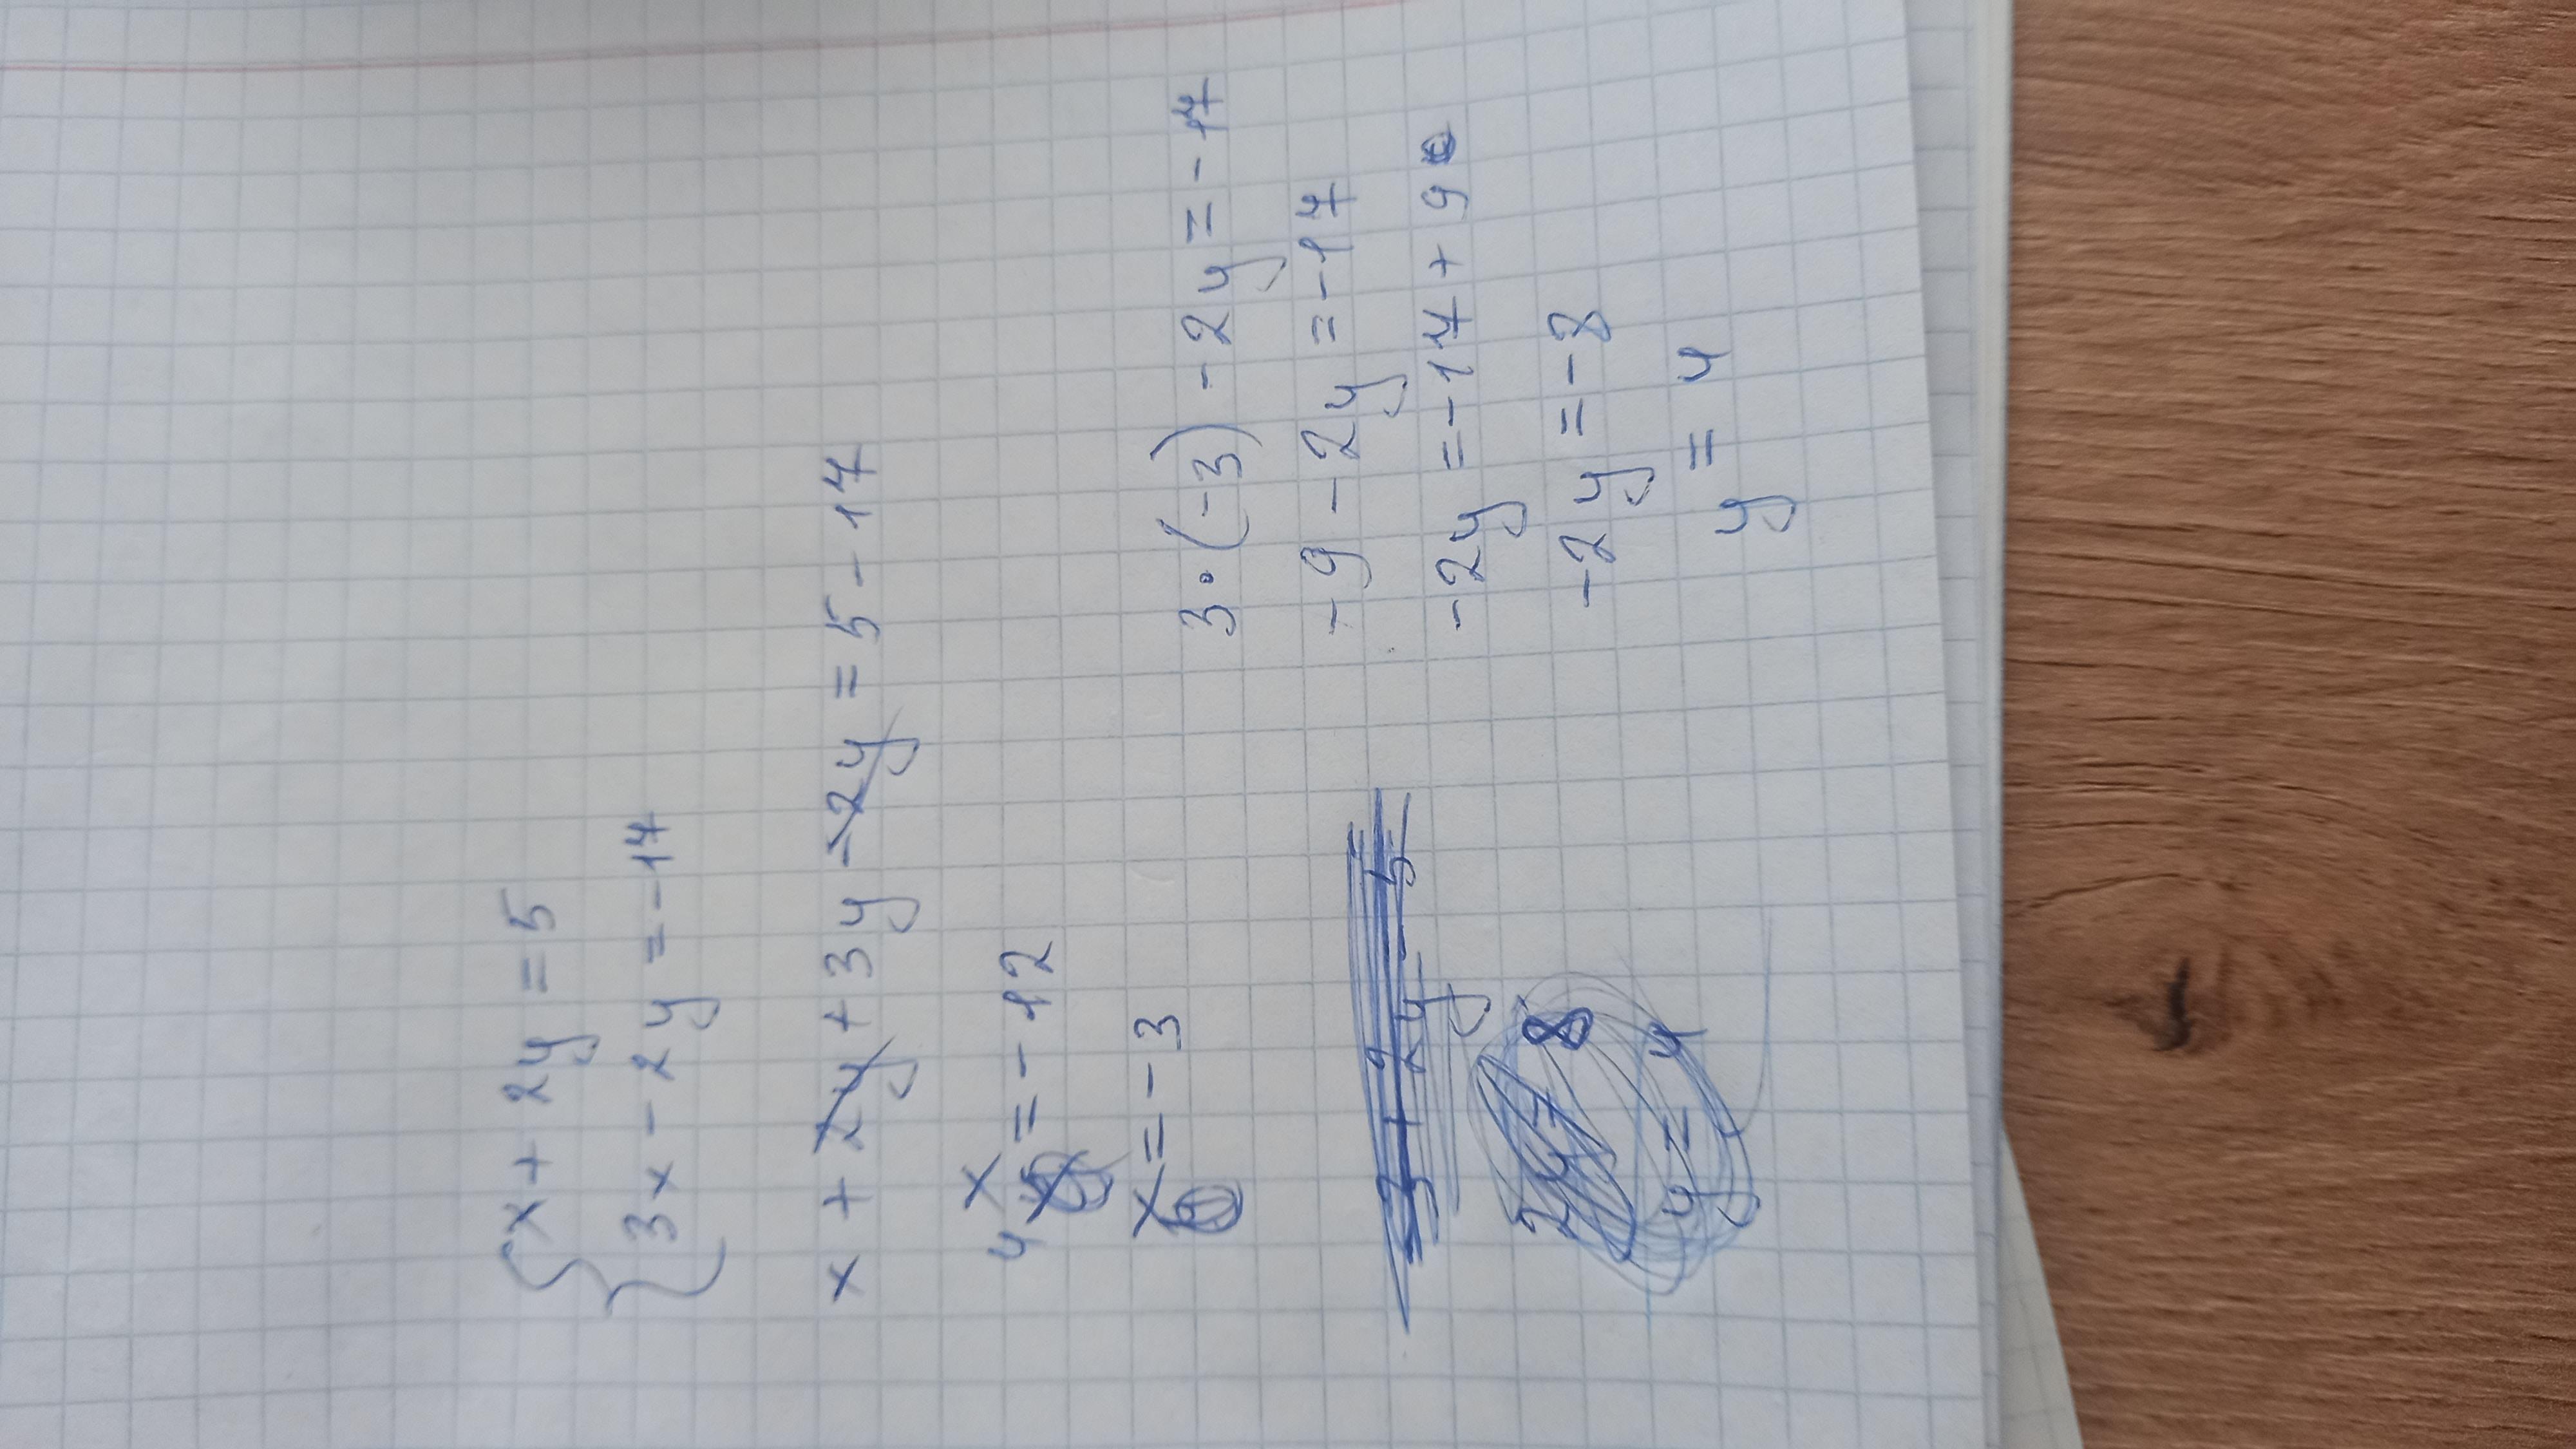 x + 2y = 5
3x - 2y = -17
x + 2y + 3y - 2y = 5 - 17
4x = -12
x = -3
3 · (-3) - 2y = -17
-9 - 2y = -17
-2y = -17 + 9
-2y = -8
y = 4
2y = 8
y = 4